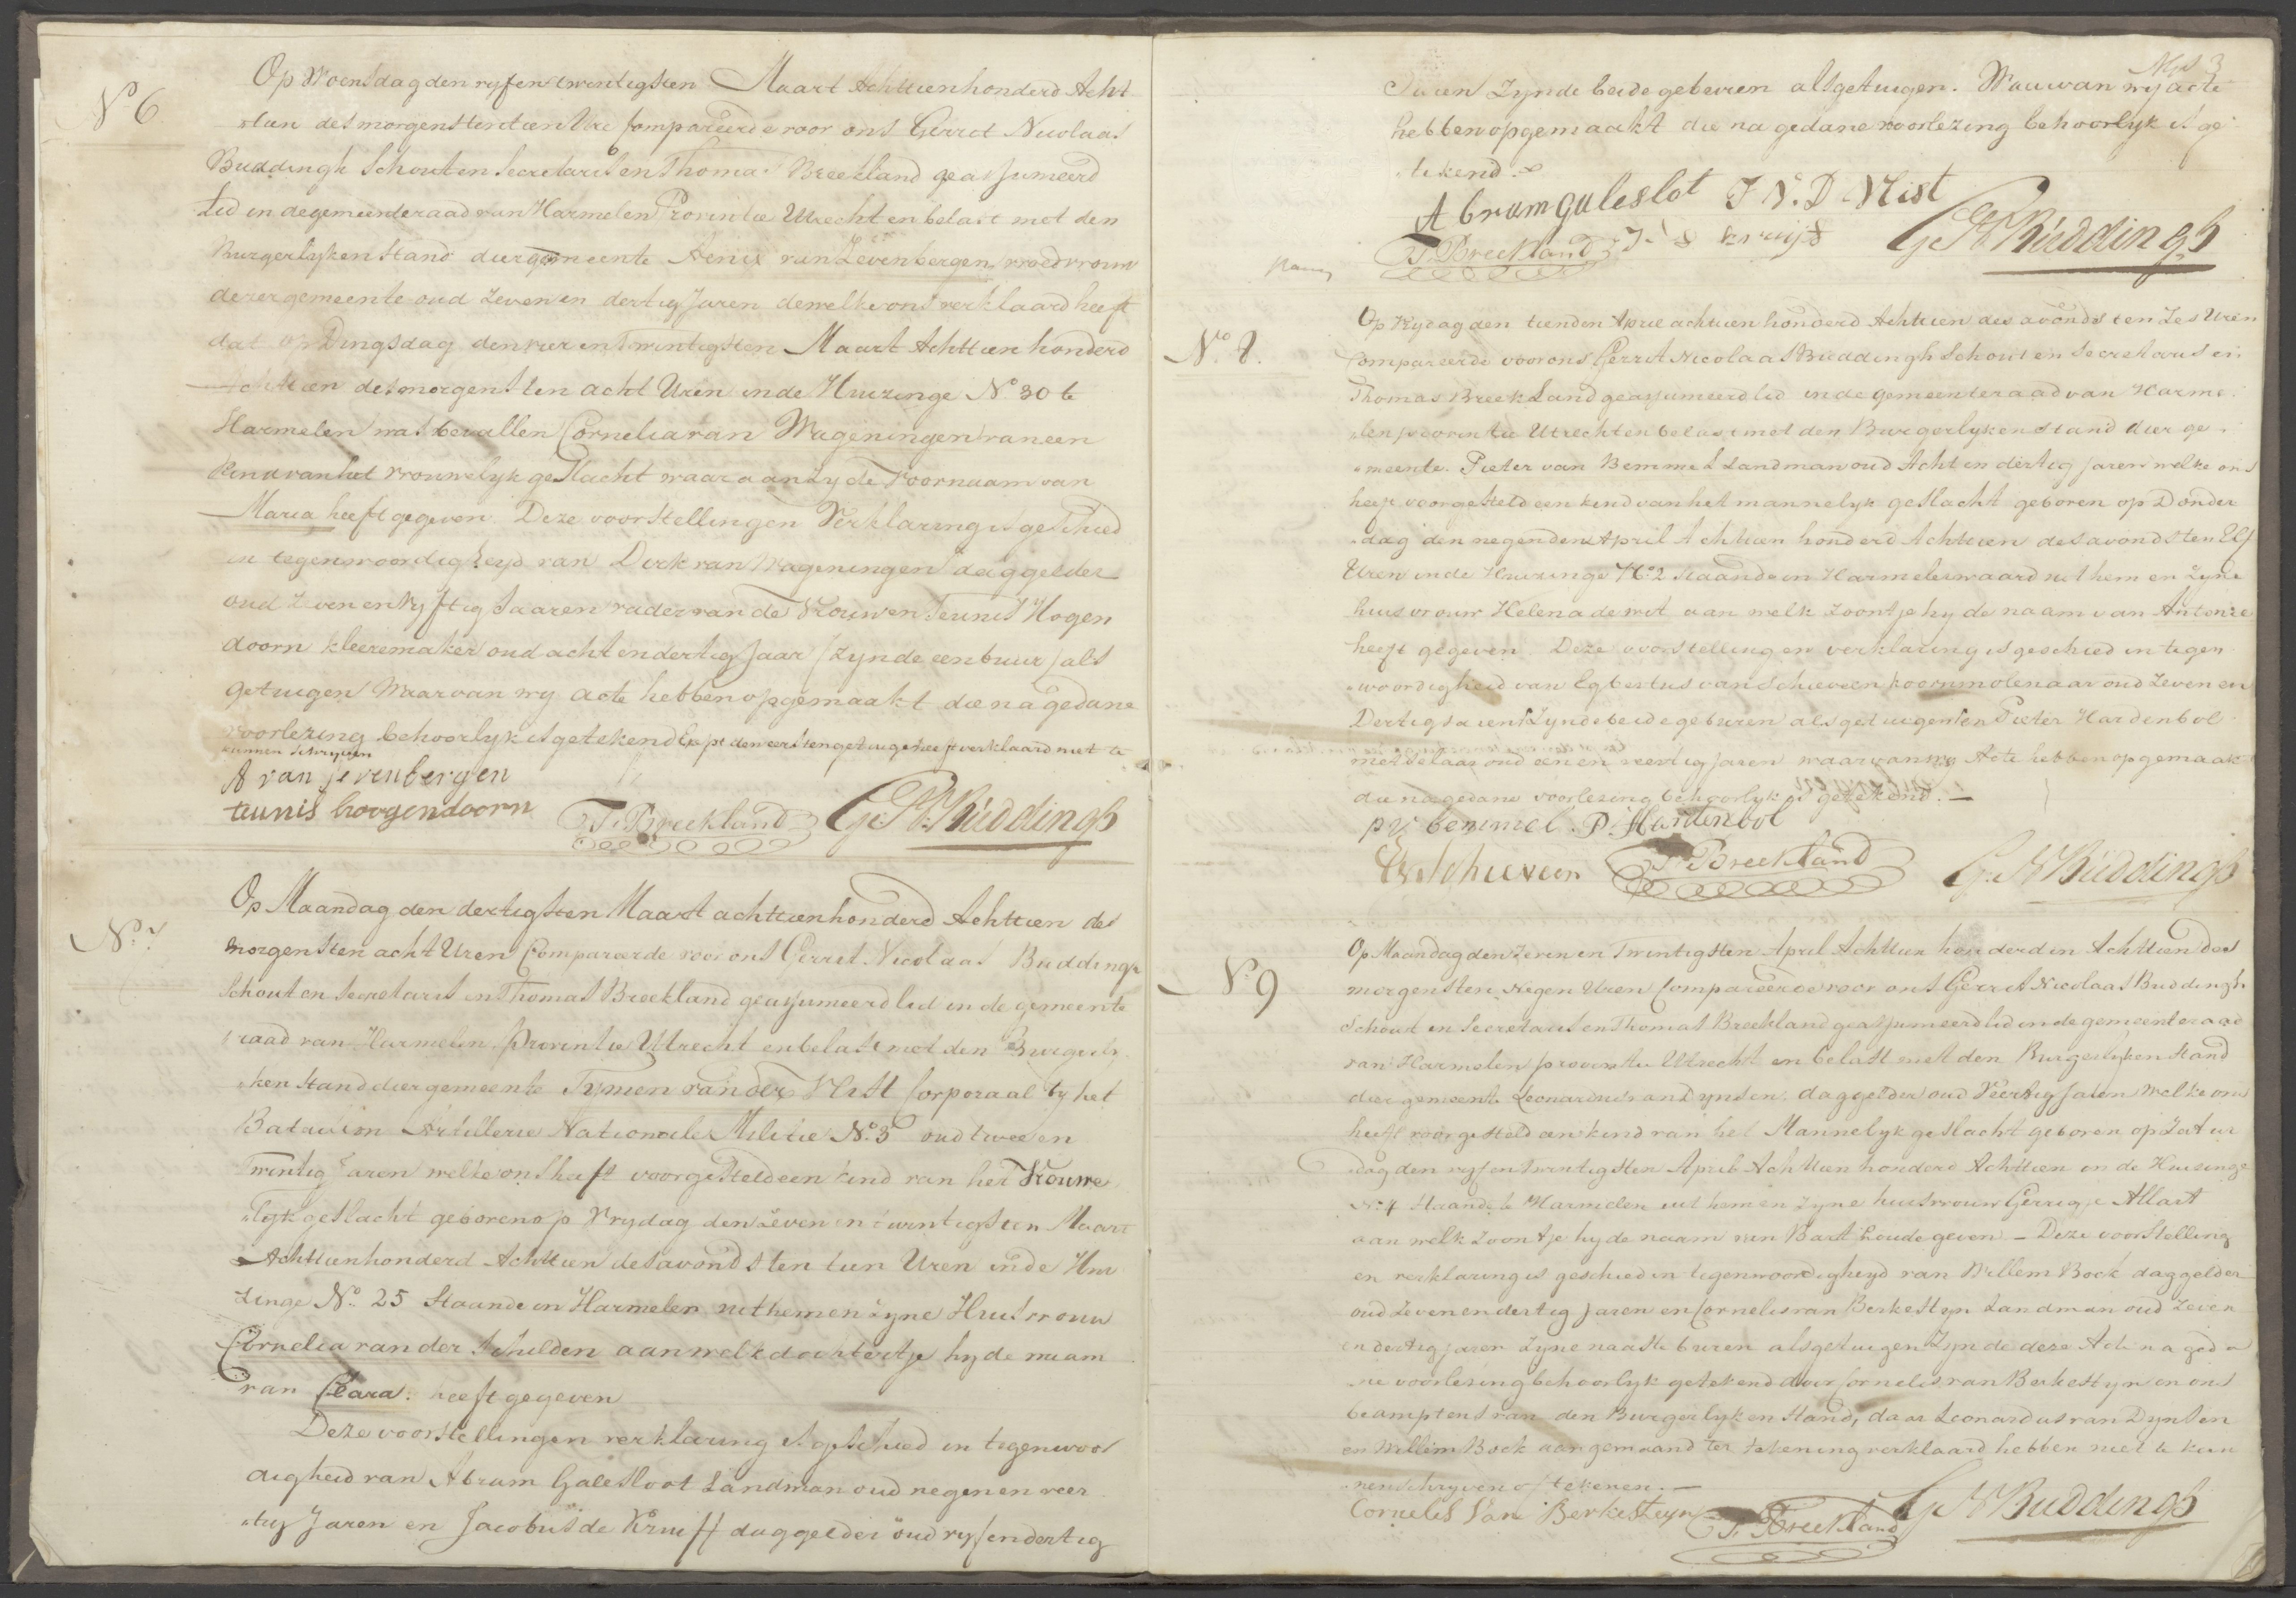 N.o 6
Op Woensdag den vyf en twintigsten Maart Achttienhonderd Acht
„tien des morgens ten tien Ure Compareerde voor ons Gerret Nicolaas
Buddingh Schout en Secretaris en Thomas Breekland geassumeerd
Lid in de gemeenderaad van Harmelen Provintie Utrecht en belast met den
Burgerlyken Stand dier gemeente Aenix van Zevenbergen vroedvrouw
dezer gemeente oud Zeven en dertig Jaren dewelke ons verklaard heeft
dat op Dingsdag den vier en Twintigsten Maart Achttien honderd
Achttien des morgens ten acht Uren in de Huizinge No 30 te
Harmelen was bevallen Cornelia van Wageningen van een
Kind van het vrouwelyk geslacht waar aan Zy de Voornaam van
Maria heeft gegeven Deze voorstelling en Verklaring is geschied
in tegenwoordigheyd van Dirk van Wageningen daggelder
oud Zeven en Vyftig Jaaren vader van de Vrouw en Teunis Hogen
doorn kleeremaker oud acht en dertig Jaar (zynde een buur) als
getuigen Waar van wy acte hebben opgemaakt die na gedane
voorlezing behoorlyk is getekend Exept den eersten getuige heeft verklaard niet te
kunnen schryven
A van sevenbergen
teunis hoogendoorn T. Breekland G. N. Buddingh
N.o 7
Op Maandag den dertigsten Maart achttienhonderd Achttien des
morgens ten acht Uren Compareerde voor ons Gerret Nicolaas Buddingh
Schout en Secretaris en Thomas Breekland geassumeerd lid in de gemeente
„raad van Harmelen Provintie Utrecht en belast met den Burgerly
„ken Stand dier gemeente Tymen van der Nist Corporaal by het
Bataillon Artillerie Nationale Militie N.o 3 oud twee en
Twintig Jaren welke ons heeft voorgesteld een kind van het Vrouwe
„lyk geslacht geboren op Vrydag den Zeven en twintigsten Maart
Achttienhonderd Achttien des avonds ten tien Uren in de Hui
zinge N.o 25 Staande in Harmelen uit hem en Zyne Huisvrouw
Cornelia van der Schilden aan welk dochtertje hy de naam
van Clara heeft gegeven
Deze voorstelling en verklaring is geschied in tegenwoor
digheid van Abram Galesloot Landman oud negen en veer
„tig Jaren en Jacobus de Kruiff daggelder oud vyf en dertig
3
Jaren Zynde beide gebuuren als getuigen. Waar van wy acte
hebben opgemaakt die na gedane voorlezing behoorlyk is ge
„tekend.
Abram galeslot T V. D Nist
T. Breekland J. d kruijf G. N. Buddingh
N.o 8.
Op Vrydag den tienden April achttien honderd Achttien des avonds ten Zes Uren
Compareerde voor ons Gerrit Nicolaas Buddingh Schout en Secretaris en
Thomas Breekland geassumeerd lid in de gemeenteraad van Harme
„len provintie Utrecht en belast met den Burgerlyken Stand dier ge
„meente. Pieter van Bemmel Landman oud Acht en dertig jaren welke ons
heeft voorgesteld een kind van het mannelyk geslacht geboren op Donder
„dag den negenden April Achttien honderd Achttien des avonds ten Elf
Uren in de Huizinge N.o 2 staande in Harmelerwaard uit hem en Zyne
huisvrouw Helena de wit aan welk zoontje hy de naam van Antonie
heeft gegeven. Deze voorstelling en verklaring is geschied in tegen
„woordigheid van Egbertus van Schieveen koornmolenaar oud Zeven en
Dertig Jaren Zynde beide geburen als getuigen en Pieter Hardenbol
metselaar oud een en veertig jaren waar van wy Acte hebben opgemaakt
die na gedane voorlezing behoorlyk is getekend. —
p v bemmel. P. Hardenbol
E v Schieveen T. Breekland G. N. Buddingh
N.o 9
Op Maandag den Zeven en Twintigsten April Achttien honderd en Achttien des
morgens ten negen Uren Compareerde voor ons Gerret Nicolaas Buddingh
Schout en Secretaris en Thomas Breekland geassumeerd lid in de gemeenteraad
van Harmelen provintie Utrecht en belast met den Burgerlyken Stand
dier gemeente Leonardus van Dynsen. daggelder oud Veertig Jaren welke ons
heeft voorgesteld een kind van het Mannelyk geslacht geboren op Zatur
„dag den vyf en twintigsten April Achttien honderd Achttien in de Huizinge
N.o 4 Staande te Harmelen uit hem en zyne huisvrouw Gerrigje Allart
aan welk Zoontje hy de naam van Bart Zoude geven. — Deze voorstelling
en verklaring is geschied in tegenwoordigheyd van Willem Bock daggelder
oud Zeven en dertig Jaren en Cornelis van Berkestyn Landman oud Zeven
en dertig jaren zyne naaste buren als getuigen Zynde deze Acte na geda
„ne voorlesing behoorlyk getekend door Cornelis van Berkestyn en ons
beamptens van den Burgerlyken Stand, daar Leonardus van Dynsen
en Willem Bock aangemaand ter tekening verklaard hebben niet te kun
„nen schryven of tekenen. —
Cornelis Van Berkesteyn T. Breekland G. N. Buddingh